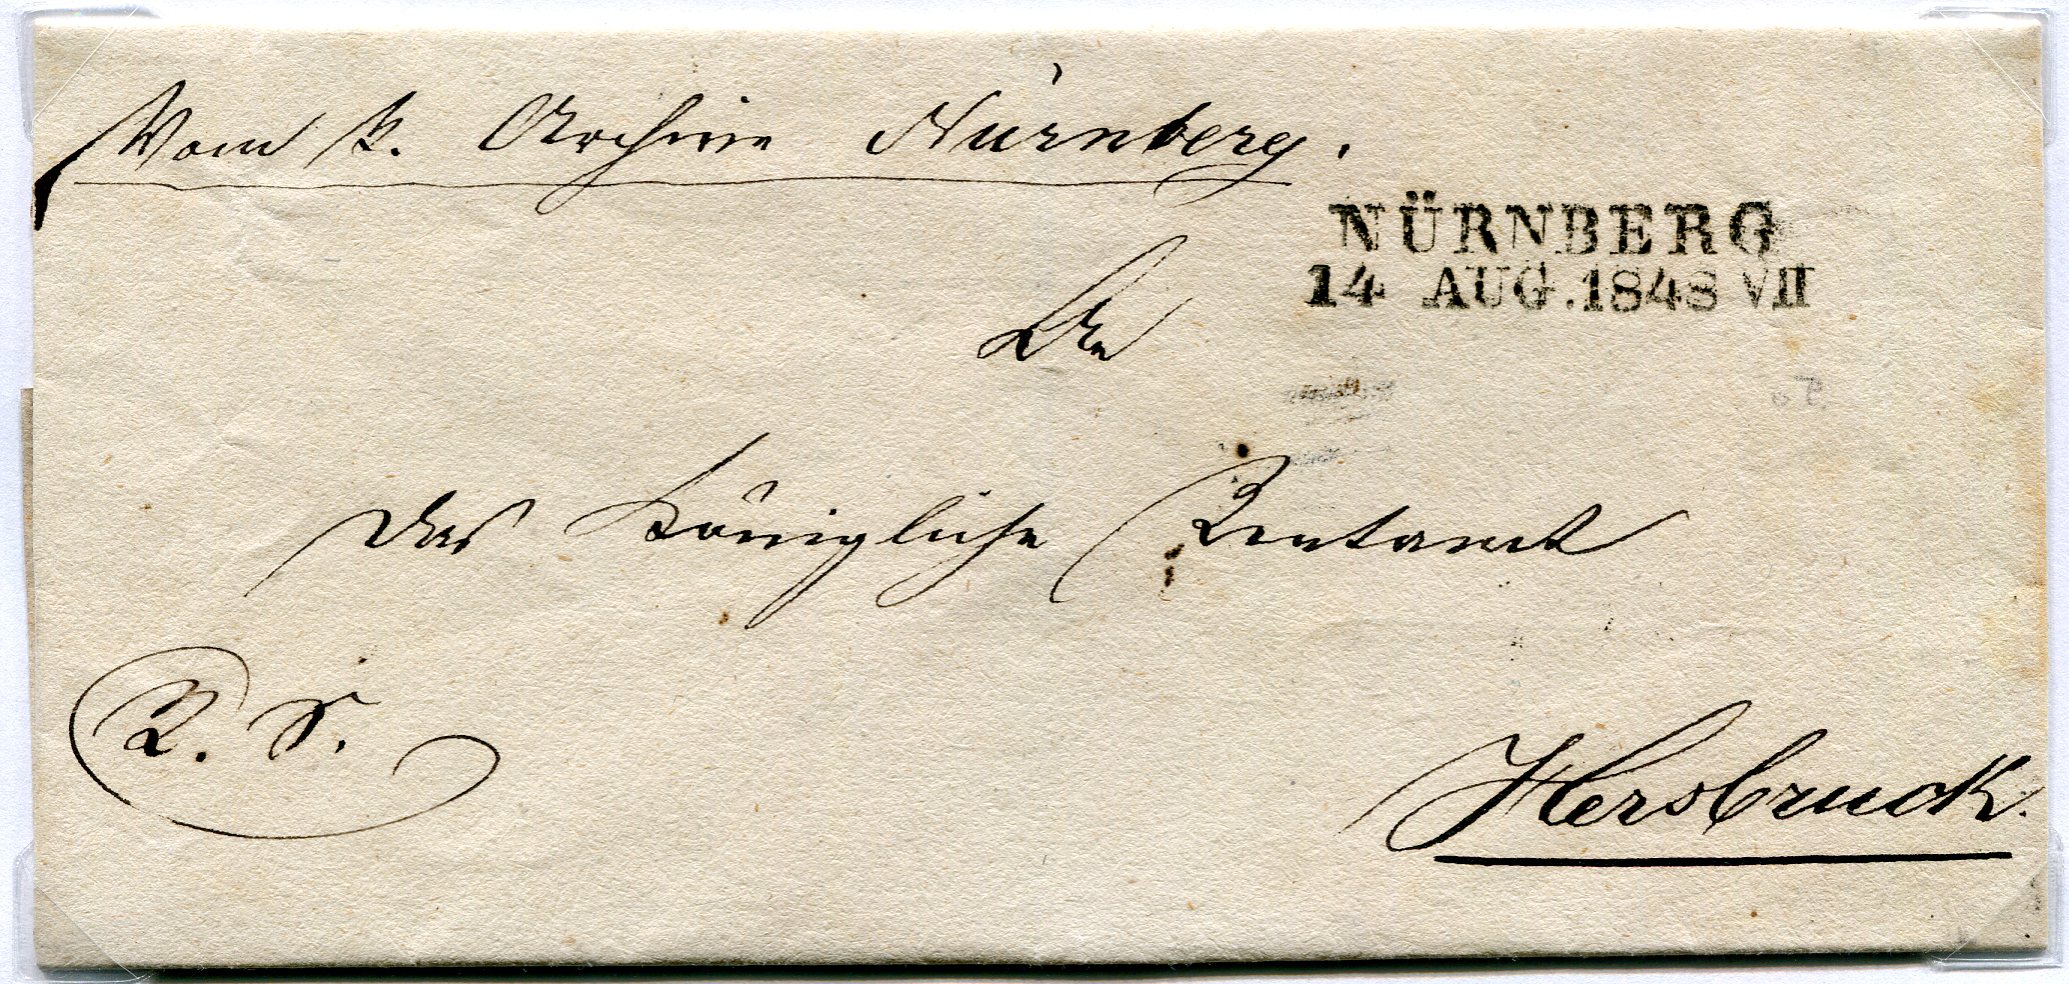 Vom k. Archive Nürnberg.
NÜRNBERG
14 AUG. 1848 VII
An
das Königliche Rentamt
R. S.
Hersbruck.